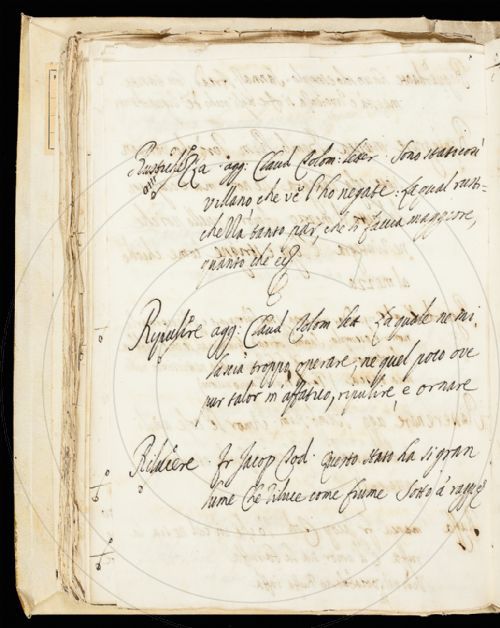 agg: Claud Tolom: letter: Sono stati così
villano, che ve l'ho negate. La qual rusti-
chezza tanto par, che si faccia maggiore,
quanto che
Ripulire agg: Claud Tolom let. La quale ne mi
lascia troppo operare, ne quel poco ove
pur talor m'affatico, ripulire, e ornare
Rilucere. Fr Jacop Tod. Questo stato ha si gran
lume Che riluce come fiume Sotto a' raggi